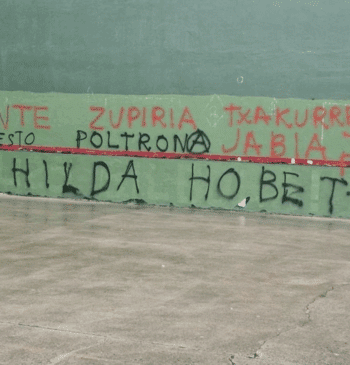 NTE ZUPIRIA TXAKURRE
ESTO POLTRONA JABIA
HILDA HOBET